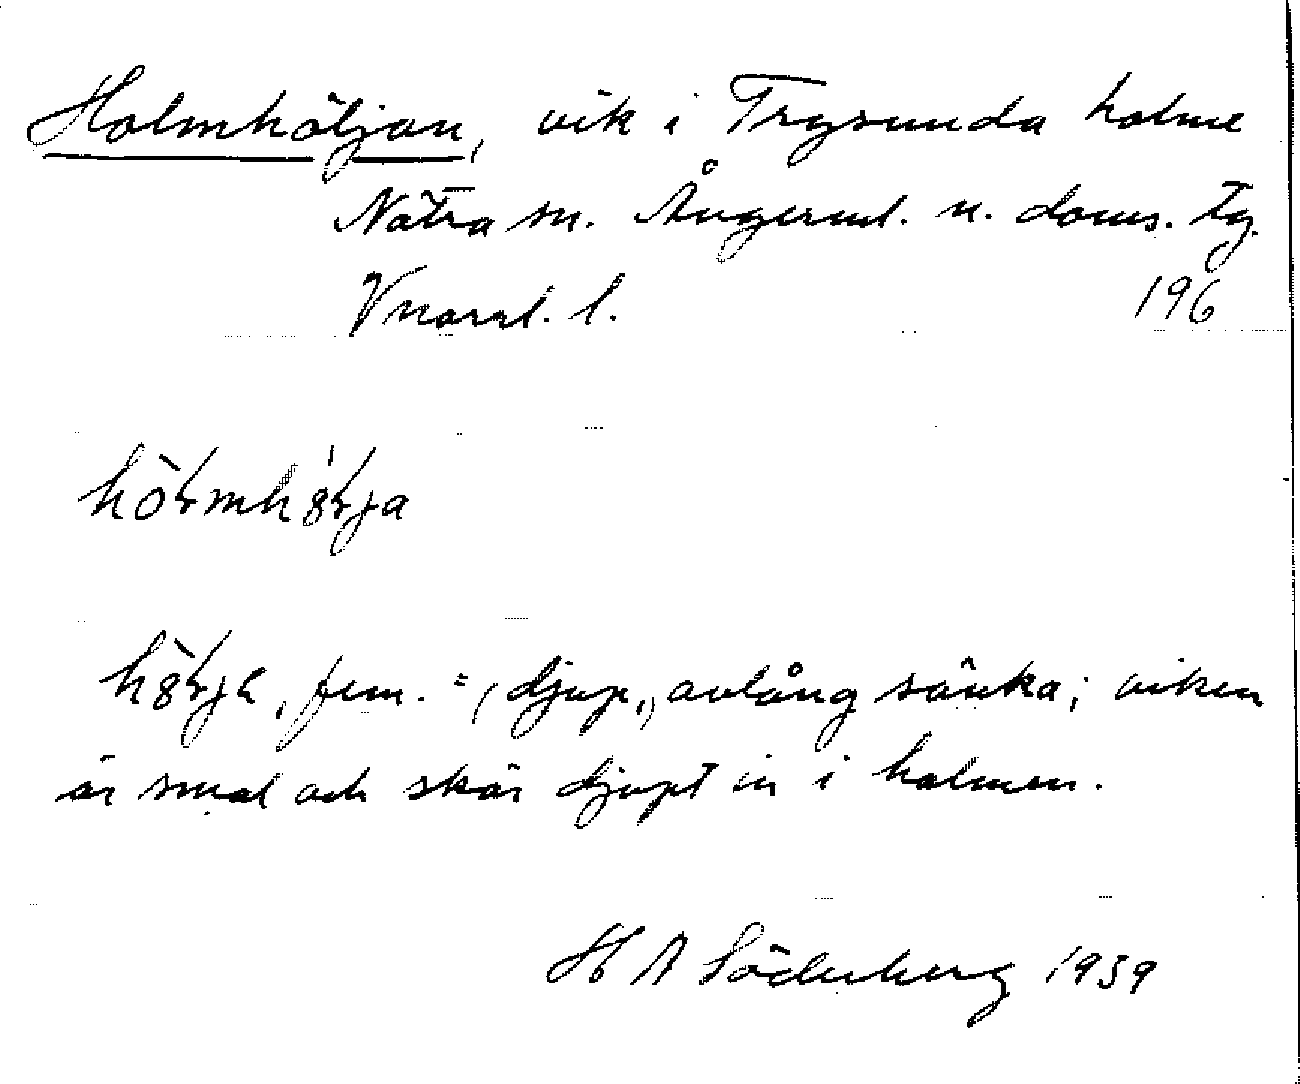 Holmhöljan, vik i Trysunda holme
Nätra sn. Ångerml. n. doms. tg.
Vnorrl. l. 196
hö̀ɫmhö́ɫja
hö̀ɫjɑ, fem. = (djup,) avlång sänka; viken
är smal och skär djupt in i holmen.
H A Söderberg 1939